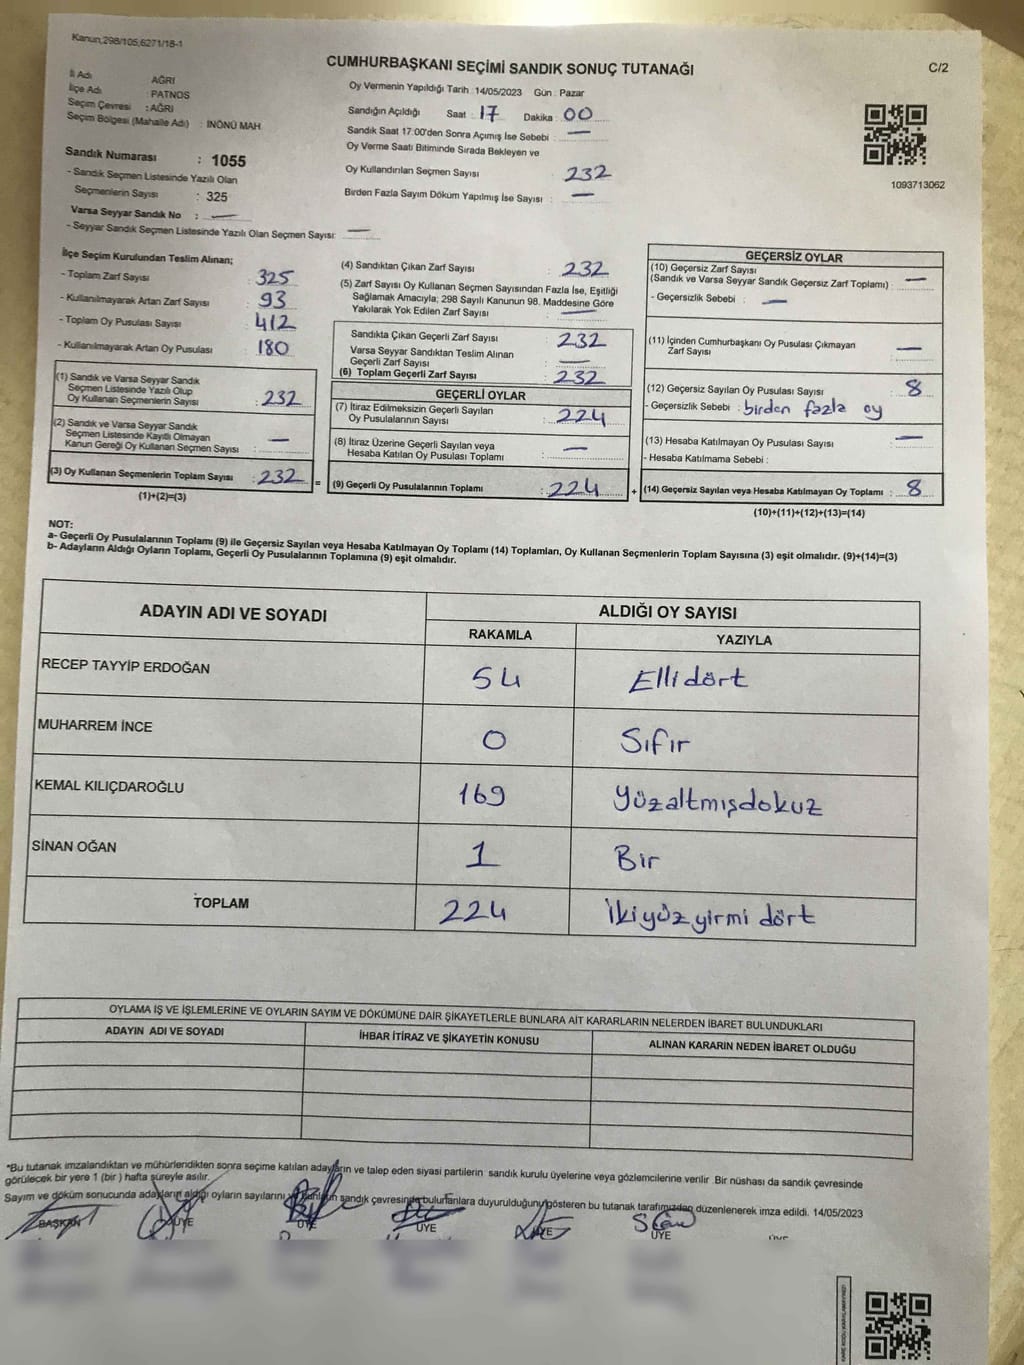 Kanun,298/105,6271/18-1
CUMHURBAŞKANI SEÇİMİ SANDIK SONUÇ TUTANAĞI
C/2
İli Adı AĞRI
İlçe Adı PATNOS
Seçim Çevresi : AĞRI
Seçim Bölgesi (Mahalle Adı) : İNÖNÜ MAH.
Sandık Numarası : 1055
- Sandık Seçmen Listesinde Yazılı Olan
Seçmenlerin Sayısı : 325
Varsa Seyyar Sandık No : —
- Seyyar Sandık Seçmen Listesinde Yazılı Olan Seçmen Sayısı: —
Oy Vermenin Yapıldığı Tarih : 14/05/2023 Gün : Pazar
Sandığın Açıldığı Saat : 17 Dakika : 00
Sandık Saat 17:00'den Sonra Açımış İse Sebebi : —
Oy Verme Saati Bitiminde Sırada Bekleyen ve
Oy Kullandırılan Seçmen Sayısı : 232
Birden Fazla Sayım Döküm Yapılmış İse Sayısı : —
1093713062
İlçe Seçim Kurulundan Teslim Alınan;
- Toplam Zarf Sayısı : 325
- Kullanılmayarak Artan Zarf Sayısı : 93
- Toplam Oy Pusulası Sayısı : 412
- Kullanılmayarak Artan Oy Pusulası : 180
(1) Sandık ve Varsa Seyyar Sandık
Seçmen Listesinde Yazılı Olup
Oy Kullanan Seçmenlerin Sayısı : 232
(2) Sandık ve Varsa Seyyar Sandık
Seçmen Listesinde Kayıtlı Olmayan
Kanun Gereği Oy Kullanan Seçmen Sayısı : —
(3) Oy Kullanan Seçmenlerin Toplam Sayısı : 232 =
(1)+(2)=(3)
(4) Sandıktan Çıkan Zarf Sayısı : 232
(5) Zarf Sayısı Oy Kullanan Seçmen Sayısından Fazla İse, Eşitliği
Sağlamak Amacıyla; 298 Sayılı Kanunun 98. Maddesine Göre
Yakılarak Yok Edilen Zarf Sayısı : —
Sandıkta Çıkan Geçerli Zarf Sayısı : 232
Varsa Seyyar Sandıktan Teslim Alınan
Geçerli Zarf Sayısı : —
(6) Toplam Geçerli Zarf Sayısı : 232
GEÇERLİ OYLAR
(7) İtiraz Edilmeksizin Geçerli Sayılan
Oy Pusulalarının Sayısı : 224
(8) İtiraz Üzerine Geçerli Sayılan veya
Hesaba Katılan Oy Pusulası Toplamı : —
(9) Geçerli Oy Pusulalarının Toplamı : 224 +
GEÇERSİZ OYLAR
(10) Geçersiz Zarf Sayısı
(Sandık ve Varsa Seyyar Sandık Geçersiz Zarf Toplamı) : —
- Geçersizlik Sebebi : —
(11) İçinden Cumhurbaşkanı Oy Pusulası Çıkmayan
Zarf Sayısı : —
(12) Geçersiz Sayılan Oy Pusulası Sayısı : 8
- Geçersizlik Sebebi : birden fazla oy
(13) Hesaba Katılmayan Oy Pusulası Sayısı : —
- Hesaba Katılmama Sebebi :
(14) Geçersiz Sayılan veya Hesaba Katılmayan Oy Toplamı : 8
(10)+(11)+(12)+(13)=(14)
NOT:
a- Geçerli Oy Pusulalarının Toplamı (9) ile Geçersiz Sayılan veya Hesaba Katılmayan Oy Toplamı (14) Toplamları, Oy Kullanan Seçmenlerin Toplam Sayısına (3) eşit olmalıdır. (9)+(14)=(3)
b- Adayların Aldığı Oyların Toplamı, Geçerli Oy Pusulalarının Toplamına (9) eşit olmalıdır.
ADAYIN ADI VE SOYADI
ALDIĞI OY SAYISI
RAKAMLA YAZIYLA
RECEP TAYYİP ERDOĞAN 54 Ellidört
MUHARREM İNCE 0 Sıfır
KEMAL KILIÇDAROĞLU 169 Yüzaltmışdokuz
SİNAN OĞAN 1 Bir
TOPLAM 224 İkiyüzyirmi dört
OYLAMA İŞ VE İŞLEMLERİNE VE OYLARIN SAYIM VE DÖKÜMÜNE DAİR ŞİKAYETLERLE BUNLARA AİT KARARLARIN NELERDEN İBARET BULUNDUKLARI
ADAYIN ADI VE SOYADI İHBAR İTİRAZ VE ŞİKAYETİN KONUSU ALINAN KARARIN NEDEN İBARET OLDUĞU
*Bu tutanak imzalandıktan ve mühürlendikten sonra seçime katılan adayların ve talep eden siyasi partilerin sandık kurulu üyelerine veya gözlemcilerine verilir. Bir nüshası da sandık çevresinde
görülecek bir yere 1 (bir ) hafta süreyle asılır.
Sayım ve döküm sonucunda adayların aldığı oyların sayılarını sandık çevresinde bulunanlara duyurulduğunu gösteren bu tutanak tarafımızdan düzenlenerek imza edildi. 14/05/2023
BAŞKAN ÜYE ÜYE ÜYE ÜYE ÜYE ÜYE